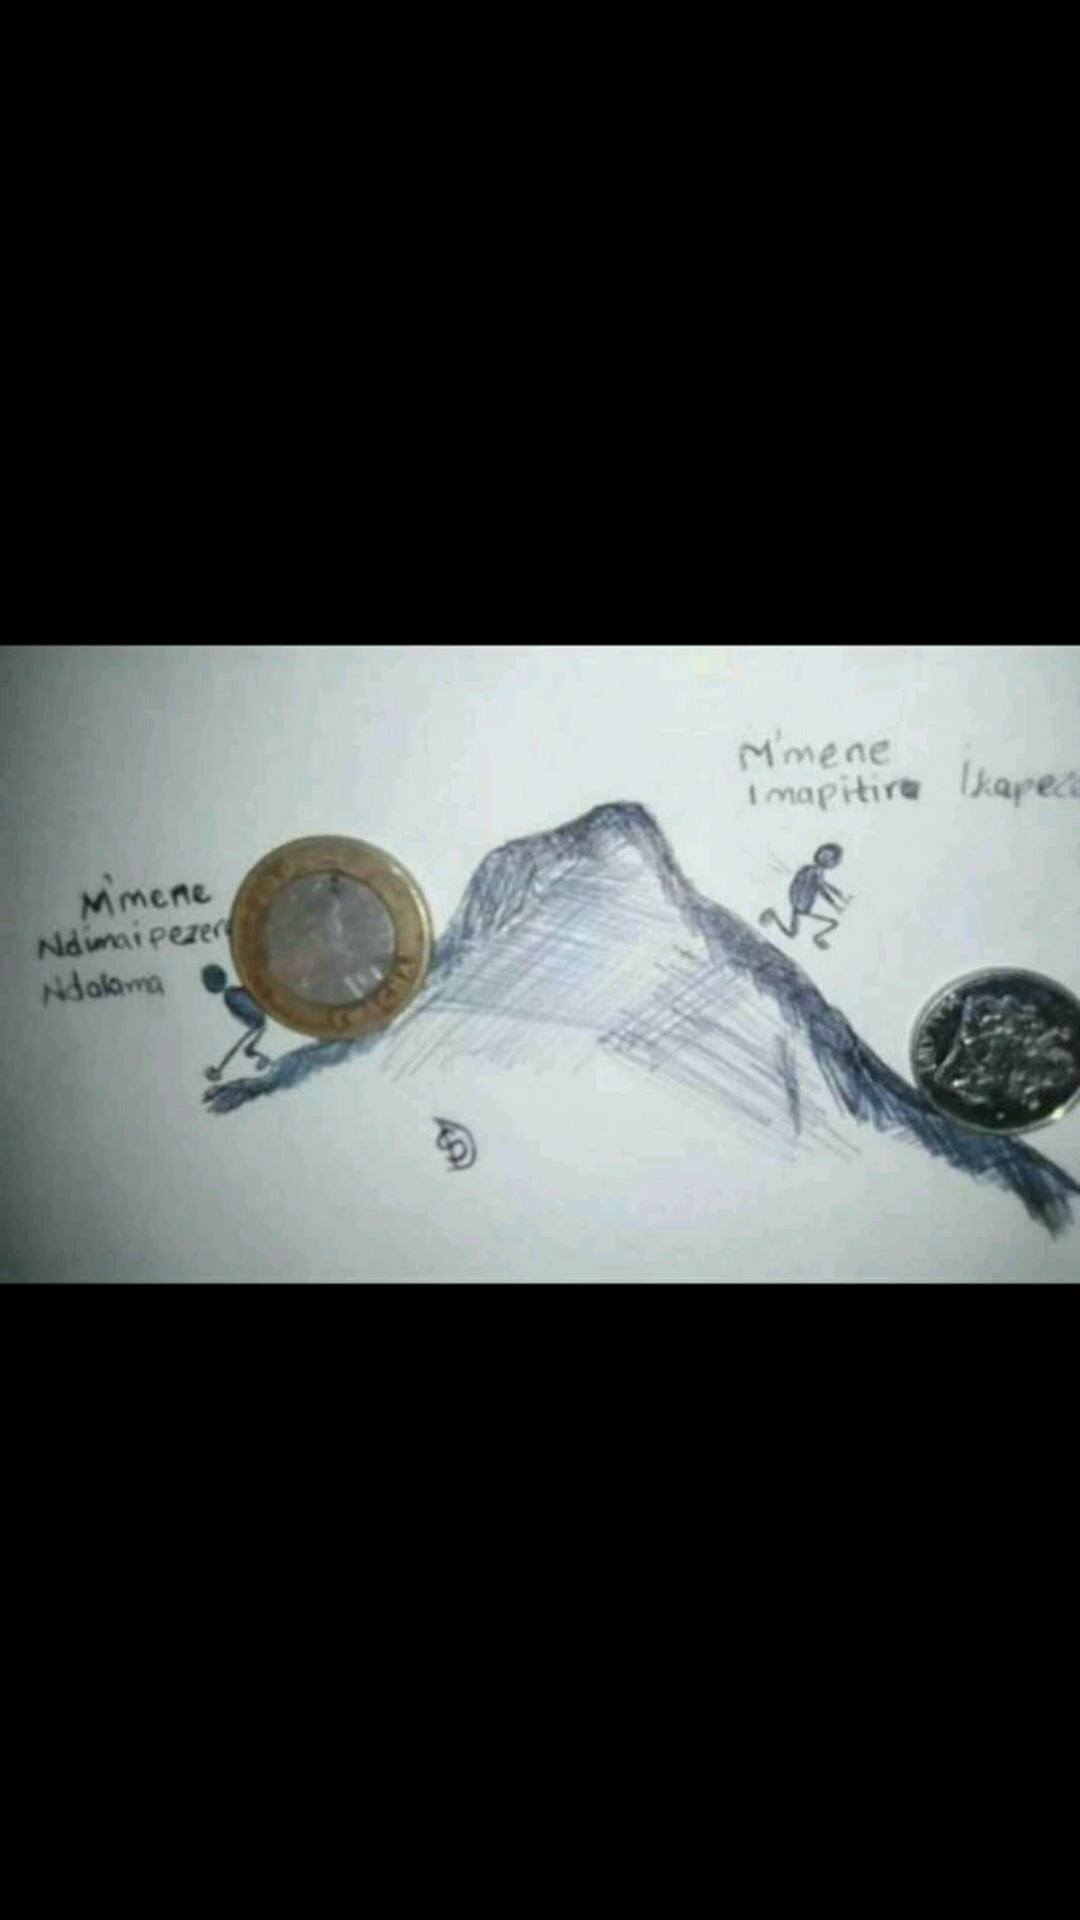 M'mene
Ndimaipezera
Ndalama
M'mene
Imapitira Ikapeza